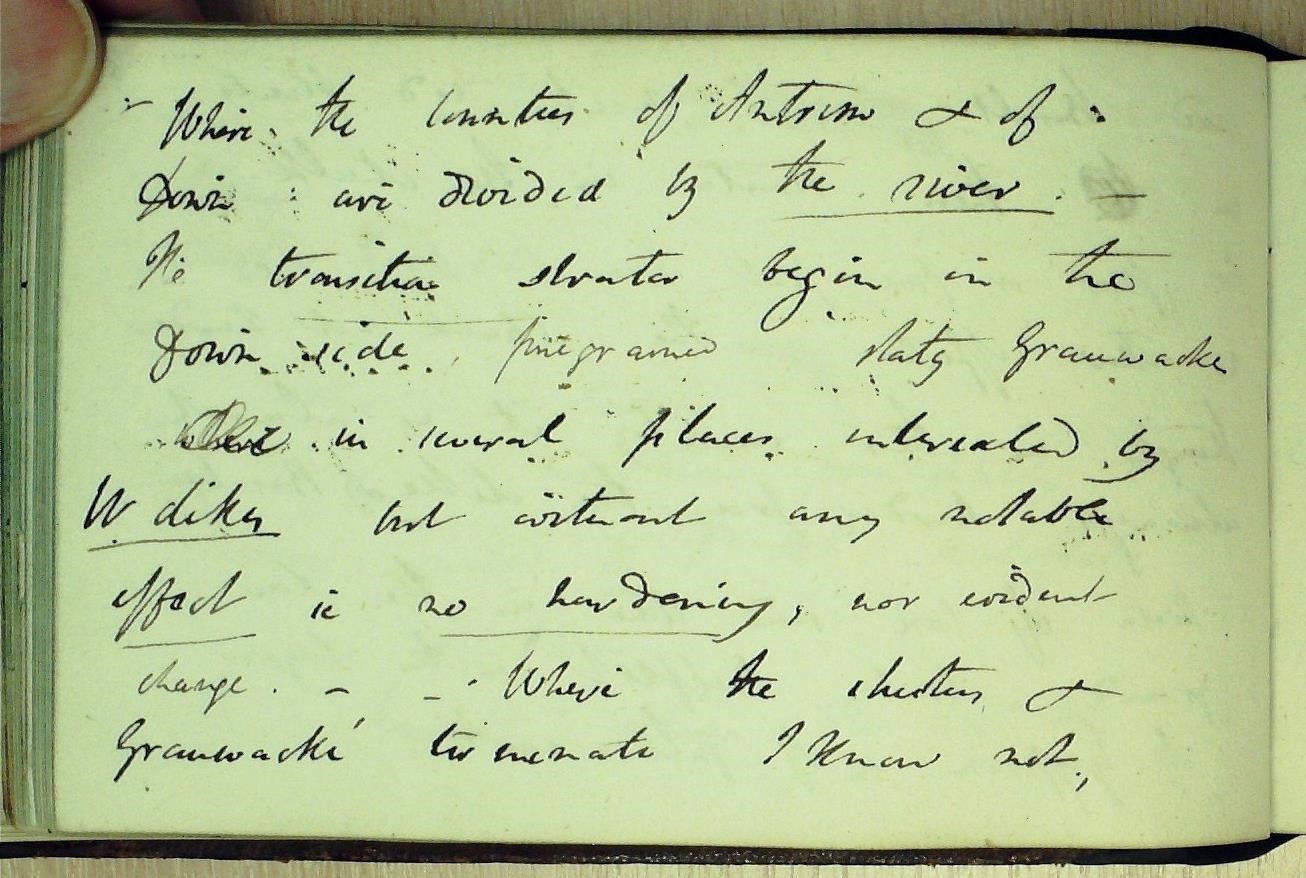 - Where the counties of Antrim & of
Down are divided by the river. -
The transition strata begin in the
Down side, fine grained slaty Grauwacke
in several places intersected by
W dikes but without any notable
effect ie no hardening, nor evident
change. - - Where the shistus &
Grauwacke terminate I know not,